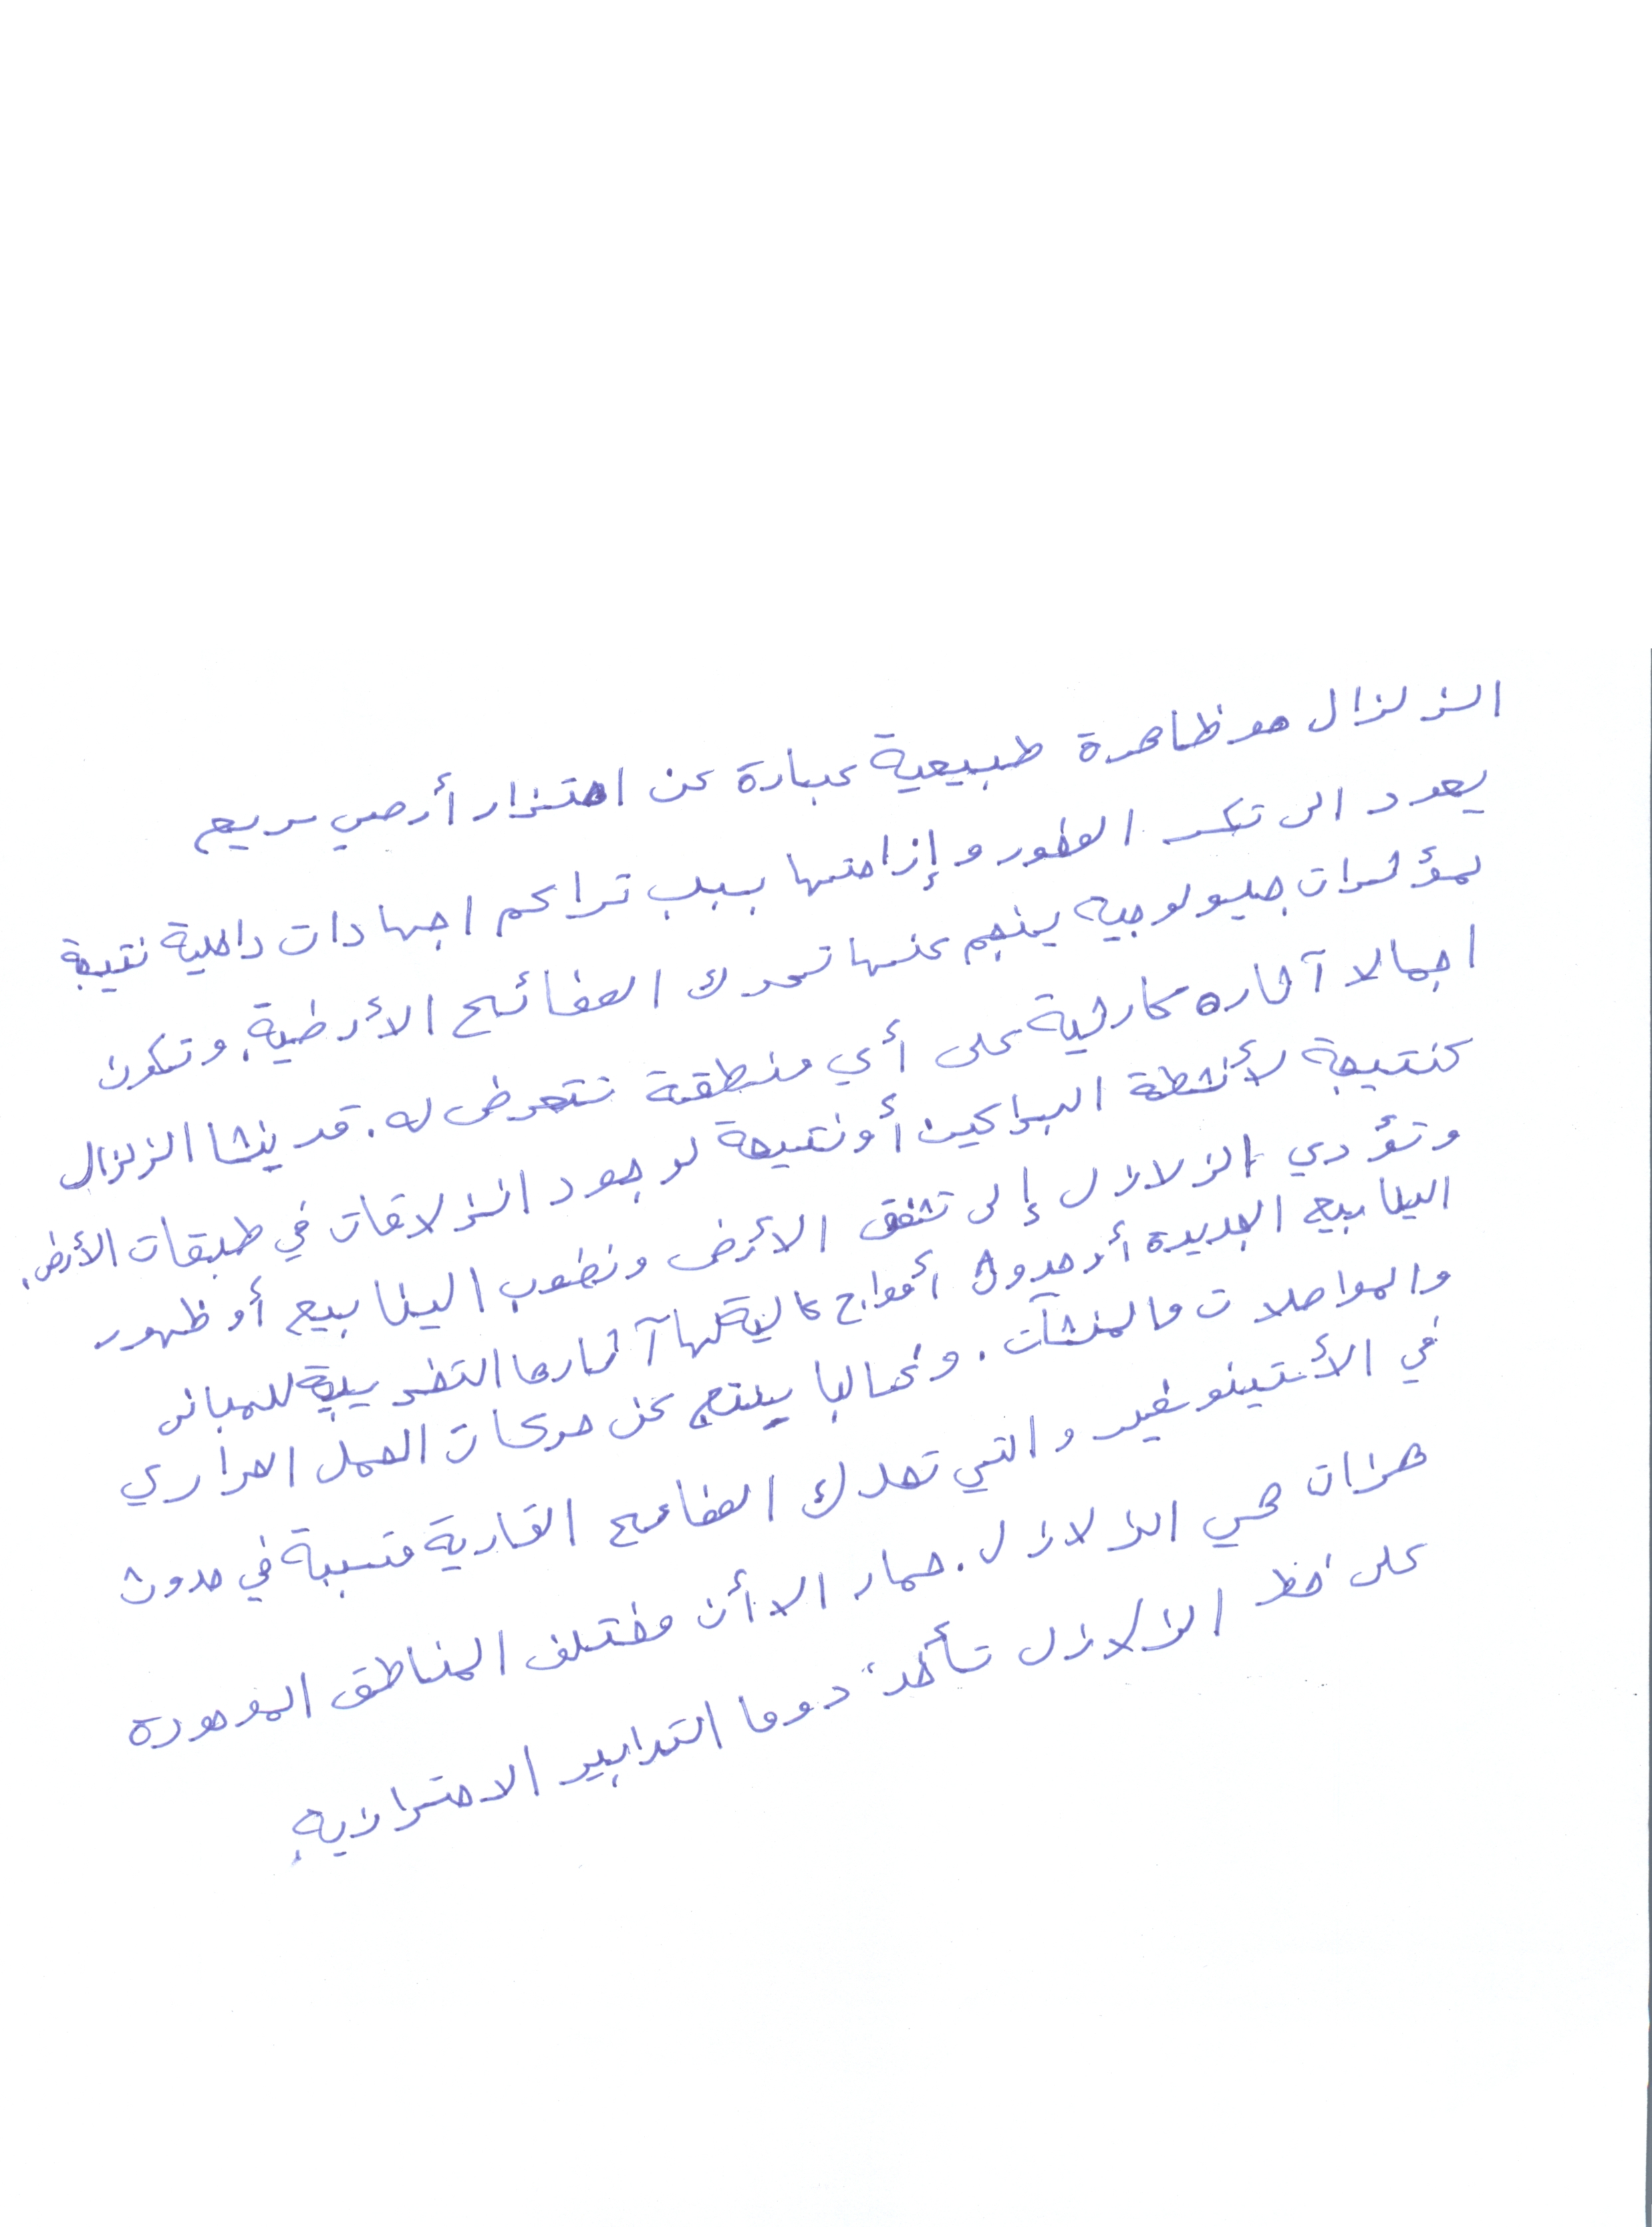 الزلزال هو ظاهرة طبيعية عبارة عن اهتزاز أرضي سريع
يعود الى تكسر الصخور وإزاحتها بسبب تراكم اجهادات داخلية نتيجة
لمؤثرات جيولوجيه ينجم عنها تحرك الصفائح الأرضية. وتكون
اجمالا آثاره كارثية على أي منطقة تتعرض له. قد ينشا الزلزال
كنتيجة لأنشطة البراكين أو نتيجة لوجود انزلاقات في طبقات الأرض.
وتؤدي الزلازل إلى تشقق الأرض ونضوب الينابيع أو ظهور
الينابيع الجديدة أو حدوث أمواج عالية لها آثارها التخريبية للمبانى
والمواصلات والمنشآت. وغالبا ينتج عن حركات الحمل الحراري
في الأستينوسفير والتي تحرك الصفائح القارية متسببة في حدوث
هزات هي الزلازل. حمار الا أن مختلف المناطق الموجودة
على خط الزلازل تأخذ دوما التدابير الاحترازيه.